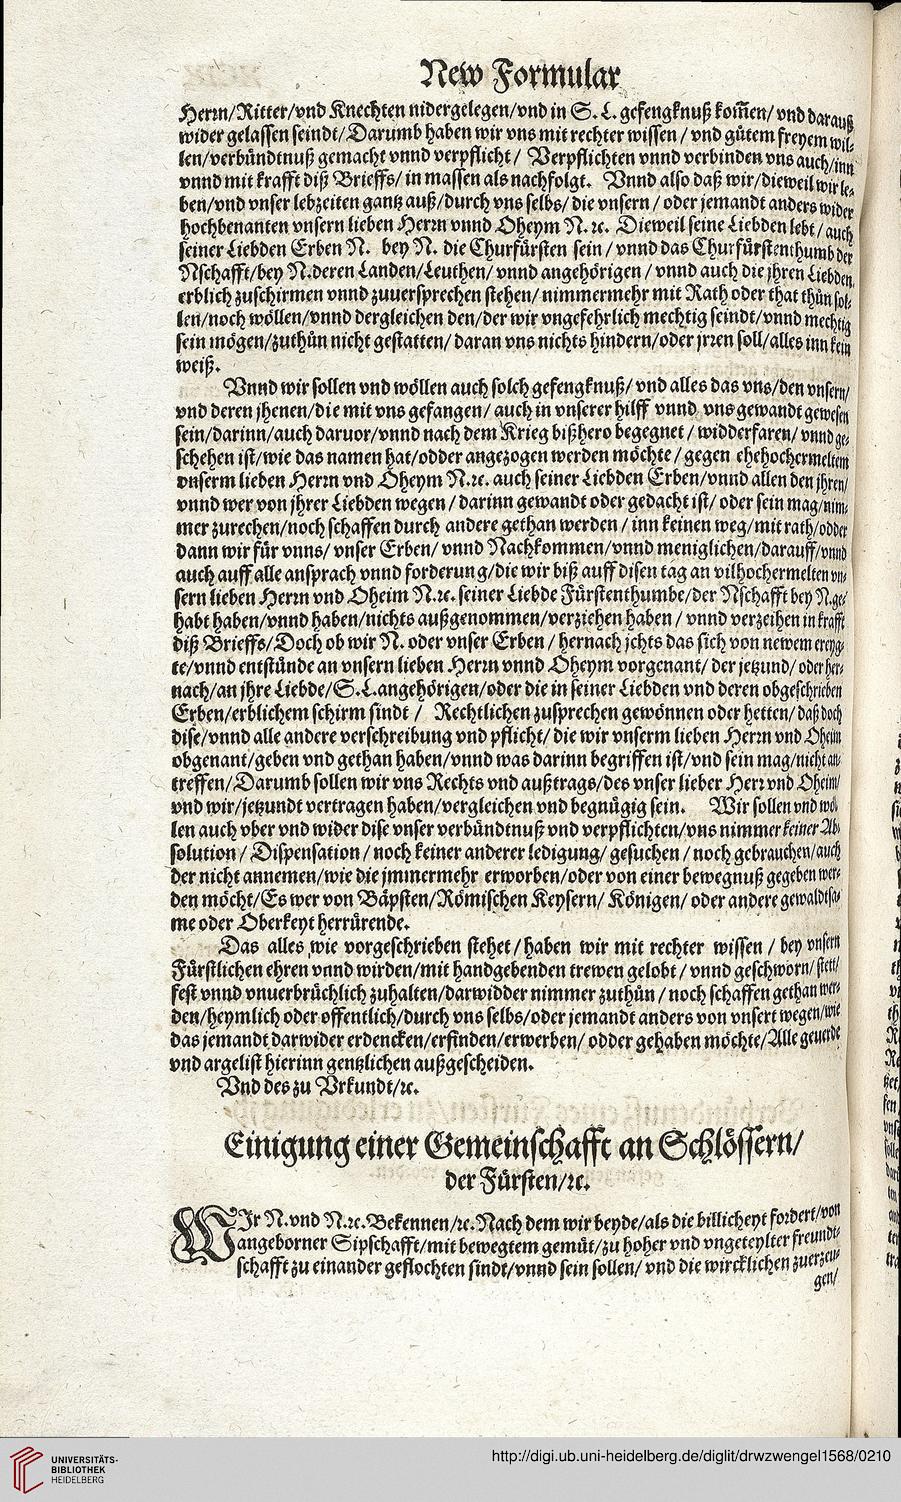 New Formular
Herrn/Ritter/vnd Knechten nidergelegen/vnd in S. L. gefengknuß kom̃en/ vnd darauß
wider gelassen seindt/ Darumb haben wir vns mit rechter wissen / vnd gůtem freyem wil-
len/verbündtnuß gemacht vnnd verpflicht / Verpflichten vnnd verbinden vns auch/inn
vnnd mit krafft diß Brieffs/ in massen als nachfolgt. Vnnd also daß wir/dieweil wir le-
ben/vnd vnser lebzeiten gantz auß/durch vns selbs/ die vnsern / oder jemandt anders wider
hochbenanten vnsern lieben Herrn vnnd Oheym N. ꝛc. Dieweil seine Liebden lebt / auch
seiner Liebden Erben N. bey N. die Churfürsten sein / vnnd das Churfürstenthumb der
Nschafft/bey N.deren Landen/Leuthen/ vnnd angehörigen / vnnd auch die jhren Liebden
erblich zuschirmen vnnd zuuersprechen stehen/ nimmermehr mit Rath oder that thůn sol-
len/noch wöllen/vnnd dergleichen den/der wir vngefehrlich mechtig seindt/vnnd mechtig
sein mögen/zuthůn nicht gestatten/ daran vns nichts hindern/oder jrren soll/alles inn kein
weiß.
Vnnd wir sollen vnd wöllen auch solch gefengknuß/ vnd alles das vns/den vnsern/
vnd deren jhenen/die mit vns gefangen/ auch in vnserer hilff vnnd vns gewandt gewesen
sein/darinn/auch daruor/vnnd nach dem Krieg bißhero begegnet / widderfaren/ vnnd ge-
schehen ist/wie das namen hat/odder angezogen werden möchte / gegen ehehochermeltem
vnserm lieben Herrn vnd Oheym N.ꝛc. auch seiner Liebden Erben/vnnd allen den jhren/
vnnd wer von jhrer Liebden wegen / darinn gewandt oder gedacht ist/ oder sein mag/nim-
mer zurechen/noch schaffen durch andere gethan werden / inn keinen weg/mit rath/odder
dann wir für vnns/ vnser Erben/ vnnd Nachkommen/vnnd meniglichen/darauff/vnnd
auch auff alle ansprach vnnd forderung/die wir biß auff disen tag an vilhochermelten vn-
sern lieben Herrn vnd Oheim N.ꝛc. seiner Liebde Fürstenthumbe/der Nschafft bey N.ge-
habt haben/vnnd haben/nichts außgenommen/verziehen haben / vnnd verzeihen in krafft
diß Brieffs/Doch ob wir N. oder vnser Erben / hernach jchts das sich von newem ereyg-
te/vnnd entstünde an vnsern lieben Herrn vnnd Oheym vorgenant/ der jetzund/ oder her-
nach/an jhre Liebde/S.L.angehörigen/oder die in seiner Liebden vnd deren obgeschrieben
Erben/erblichem schirm sindt / Rechtlichen zusprechen gewönnen oder hetten/ daß doch
dise/vnnd alle andere verschreibung vnd pflicht/ die wir vnserm lieben Herrn vnd Oheim
obgenant/geben vnd gethan haben/vnnd was darinn begriffen ist/vnd sein mag/nicht an-
treffen/Darumb sollen wir vns Rechts vnd außtrags/des vnser lieber Herr vnd Oheim/
vnd wir/jetzundt vertragen haben/vergleichen vnd begnügig sein. Wir sollen vnd wöl-
len auch vber vnd wider dise vnser verbündtnuß vnd verpflichten/vns nimmer keiner Ab-
solution / Dispensation / noch keiner anderer ledigung/ gesuchen / noch gebrauchen/auch
der nicht annemen/wie die jmmermehr erworben/oder von einer bewegnuß gegeben wer-
den möcht/Es wer von Bäpsten/Römischen Keysern/ Königen/ oder andere gewaltsa-
me oder Oberkeyt herrürende.
Das alles wie vorgeschrieben stehet / haben wir mit rechter wissen / bey vnsern
Fürstlichen ehren vnnd wirden/mit handgebenden trewen gelobt / vnnd geschworn/ stett/
fest vnnd vnuerbrüchlich zuhalten/darwidder nimmer zuthůn / noch schaffen gethan wer-
den/heymlich oder offentlich/durch vns selbs/oder jemandt anders von vnsert wegen/wie
das jemandt darwider erdencken/erfinden/erwerben/ odder gehaben möchte/Alle geuerde
vnd argelist hierinn gentzlichen außgescheiden.
Vnd des zu Vrkundt/ꝛc.
Einigung einer Gemeinschafft an Schlössern/
der Fürsten/ꝛc.
WIr N.vnd N.ꝛc.Bekennen/ꝛc.Nach dem wir beyde/als die billicheyt fordert/von
angeborner Sipschafft/mit bewegtem gemüt/zu hoher vnd vngeteylter freundt-
schafft zu einander geflochten sindt/vnnd sein sollen/ vnd die wircklichen zuerzeu-
gen/
UNIVERSITÄTS-
BIBLIOTHEK
HEIDELBERG
http://digi.ub.uni-heidelberg.de/diglit/drwzwengel1568/0210